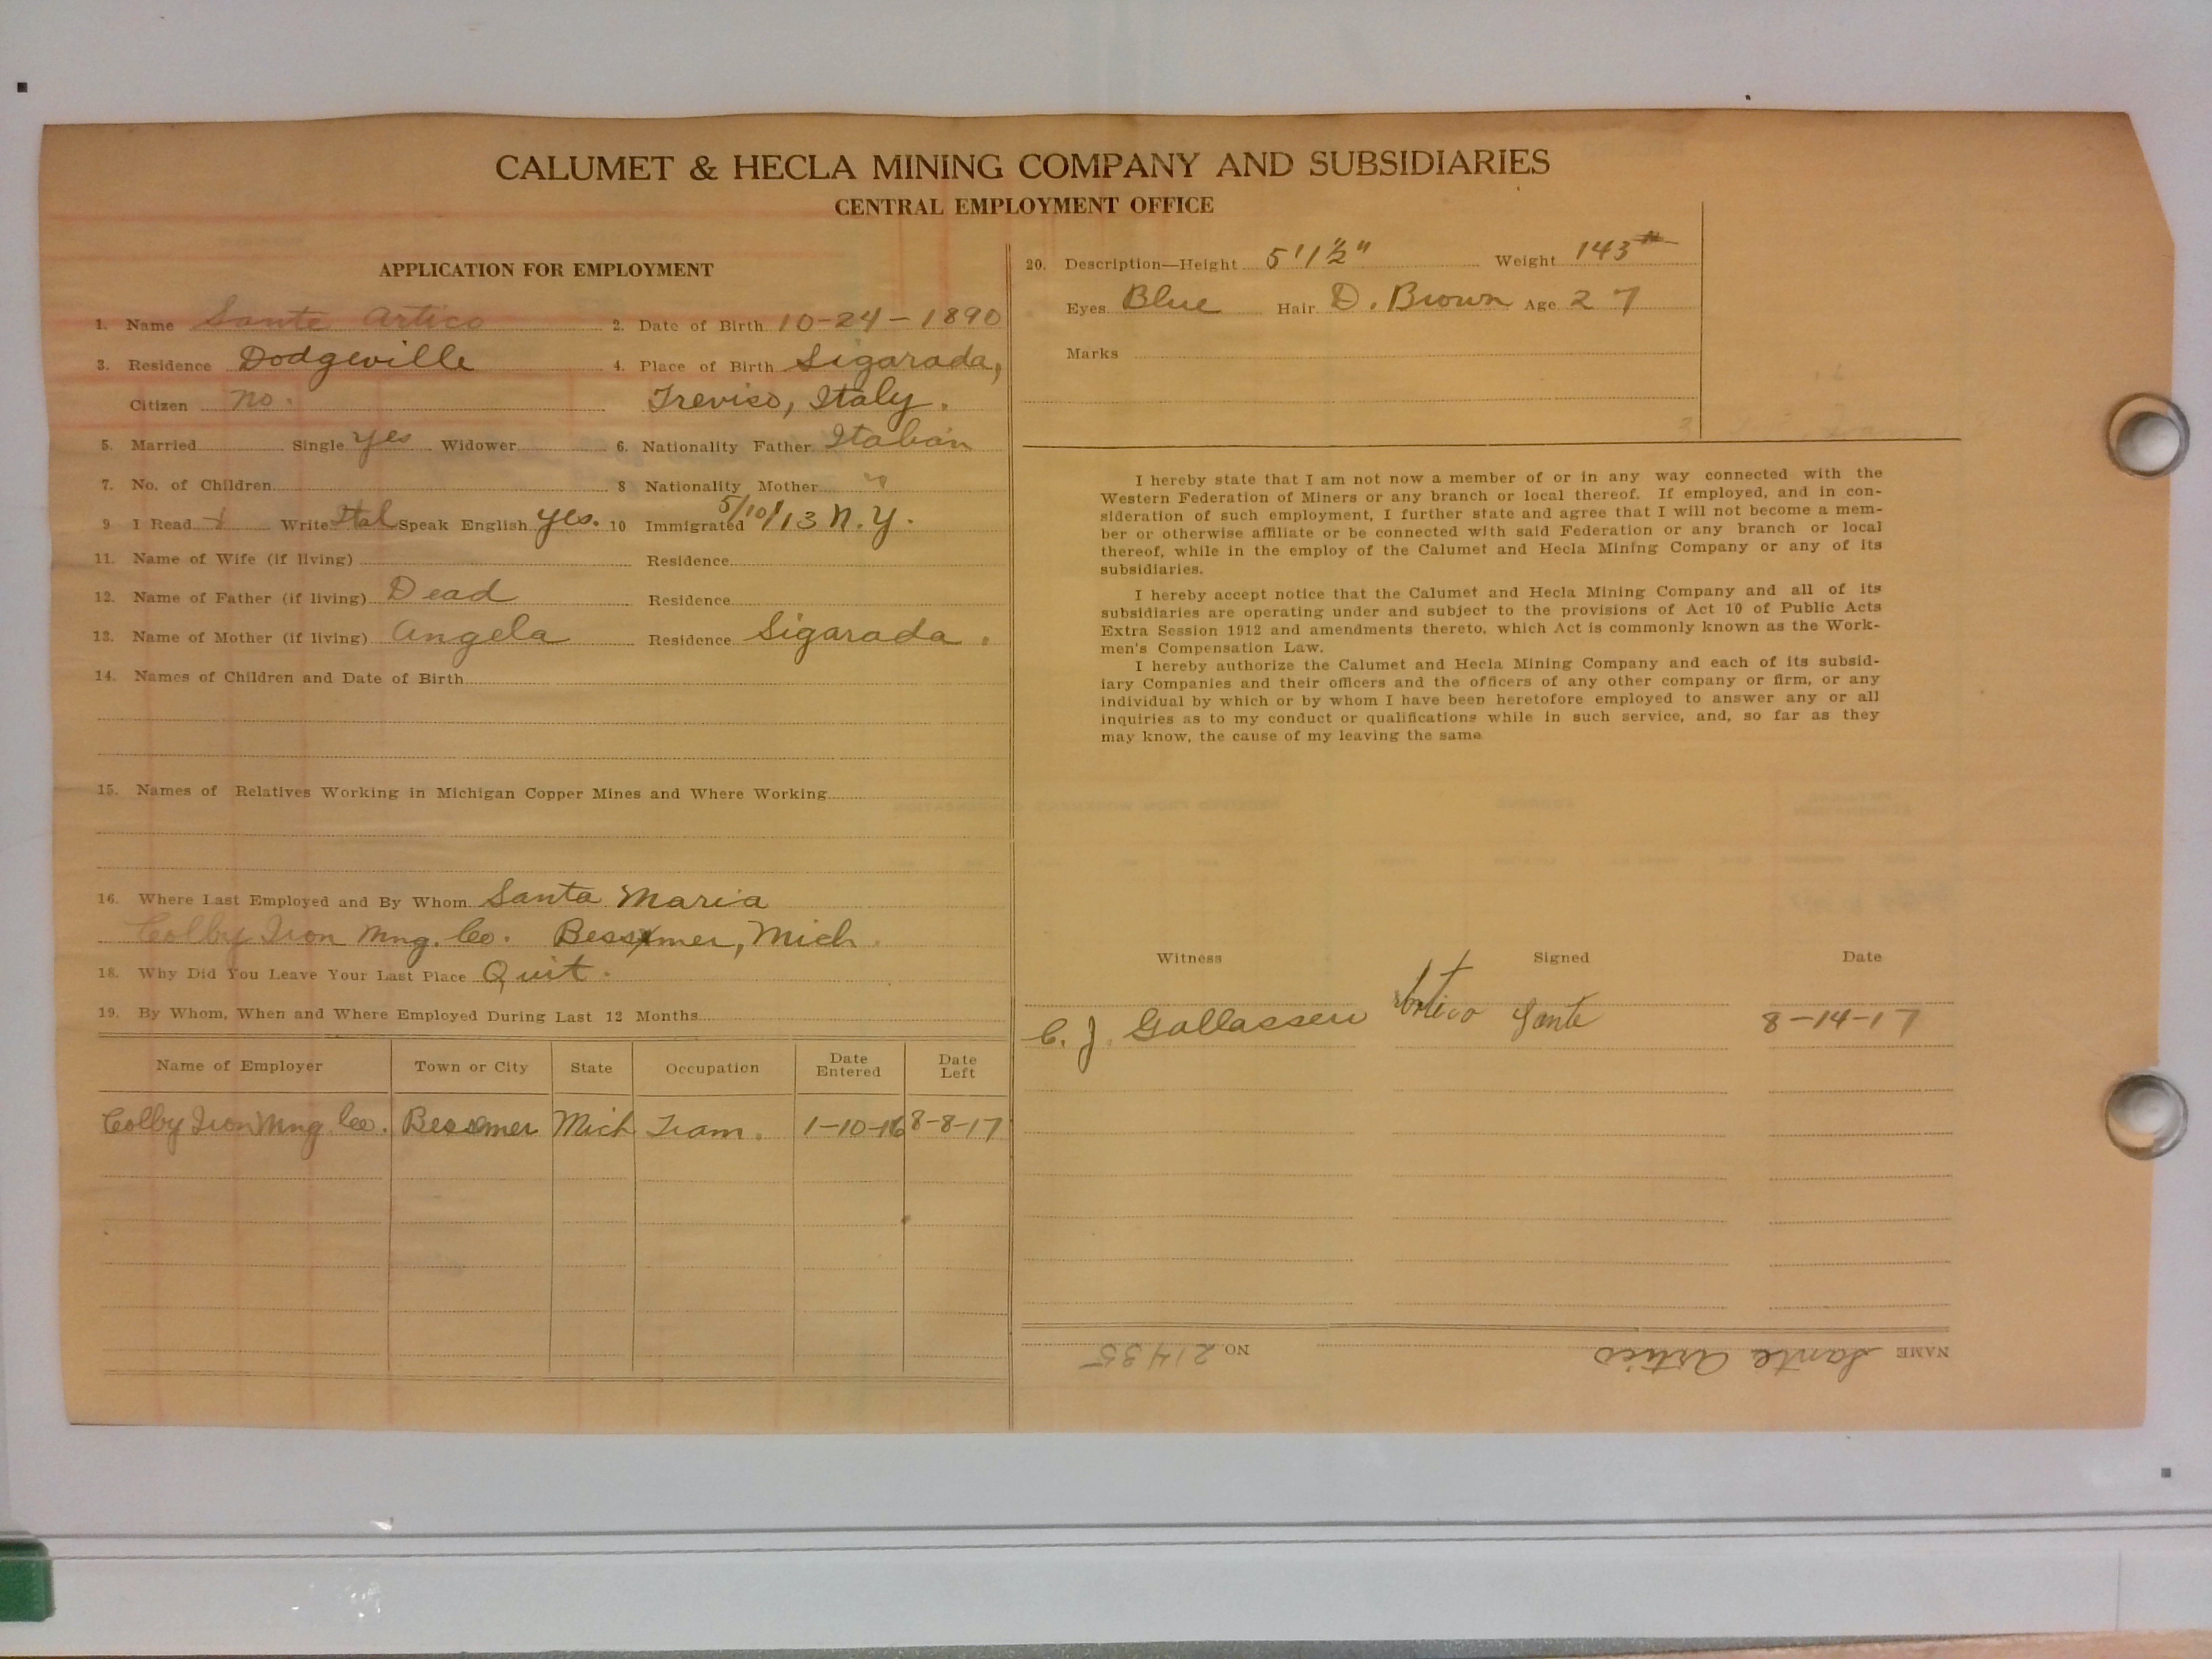 CALUMET & HECLA MINING COMPANY AND SUBSIDIARIES
CENTRAL EMPLOYMENT OFFICE
APPLICATION FOR EMPLOYMENT
1. Name Sante Artico 2. Date of Birth 10-24-1890
3. Residence Dodgeville 4. Place of Birth Sigarada,
Citizen no. Treviso, Italy.
5. Married Single yes Widower 6. Nationality Father Italian
7. No. of Children 8 Nationality Mother "
9 I Read Write Ital Speak English yes. 10 Immigrated 5/10/13 N.Y.
11. Name of Wife (if living) Residence
12. Name of Father (if living) Dead Residence
13. Name of Mother (if living) Angela Residence Sigarada.
14. Names of Children and Date of Birth
15. Names of Relatives Working in Michigan Copper Mines and Where Working
16. Where Last Employed and By Whom Santa Maria
Colby Iron Mng. Co. Bessemer, Mich.
18. Why Did You Leave Your Last Place Quit.
19. By Whom, When and Where Employed During Last 12 Months
Name of Employer Town or City State Occupation Date Entered Date Left
Colby Iron Mng. Co. Bessmer Mich Tram. 1-10-16 8-8-17
20. Description—Height 5'1½" Weight 143#
Eyes Blue Hair D. Brown Age 27
Marks
I hereby state that I am not now a member of or in any way connected with the
Western Federation of Miners or any branch or local thereof. If employed, and in con-
sideration of such employment, I further state and agree that I will not become a mem-
ber or otherwise affiliate or be connected with said Federation or any branch or local
thereof, while in the employ of the Calumet and Hecla Mining Company or any of its
subsidiaries.
I hereby accept notice that the Calumet and Hecla Mining Company and all of its
subsidiaries are operating under and subject to the provisions of Act 10 of Public Acts
Extra Session 1912 and amendments thereto, which Act is commonly known as the Work-
men's Compensation Law.
I hereby authorize the Calumet and Hecla Mining Company and each of its subsid-
iary Companies and their officers and the officers of any other company or firm, or any
individual by which or by whom I have been heretofore employed to answer any or all
inquiries as to my conduct or qualifications while in such service, and, so far as they
may know, the cause of my leaving the same
Witness Signed Date
C. J. Gallassen Artico Sante 8-14-17
NAME Sante Artico NO. 21435